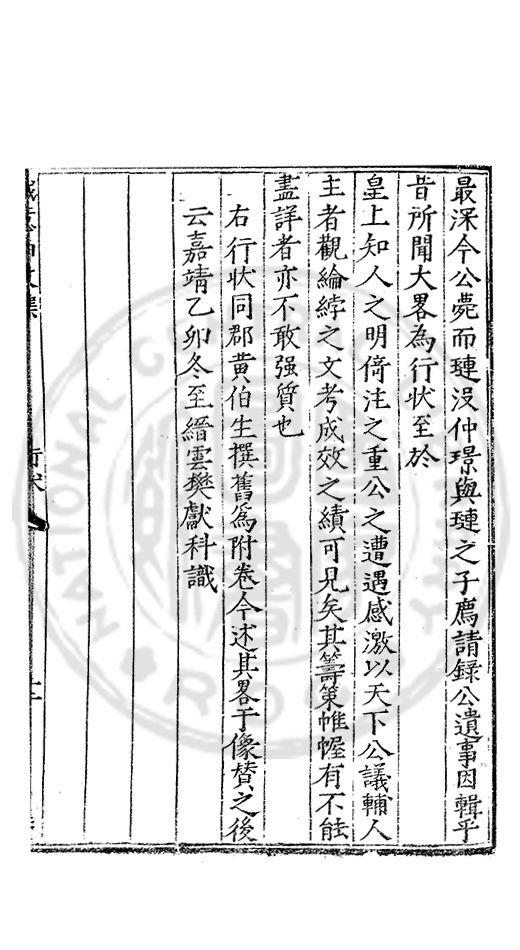 最深今公薨而璉沒仲璟與璉之子廌請録公遺事因輯乎
昔所聞大畧為行狀至於
皇上知人之明倚注之重公之遭遇感激以天下公議輔人
主者觀綸綍之文考成效之績可見矣其籌策帷幄有不能
盡詳者亦不敢强質也
右行狀同郡黄伯生撰舊為附卷今述其畧于像賛之後
云嘉靖乙卯冬至縉雲樊獻科識
行狀
NATIONAL CENTRAL LIBRARY